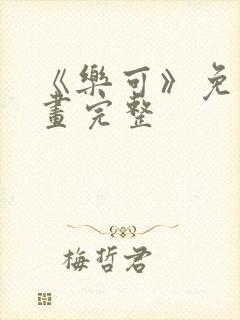 《樂可》免
畫完整
梅哲君